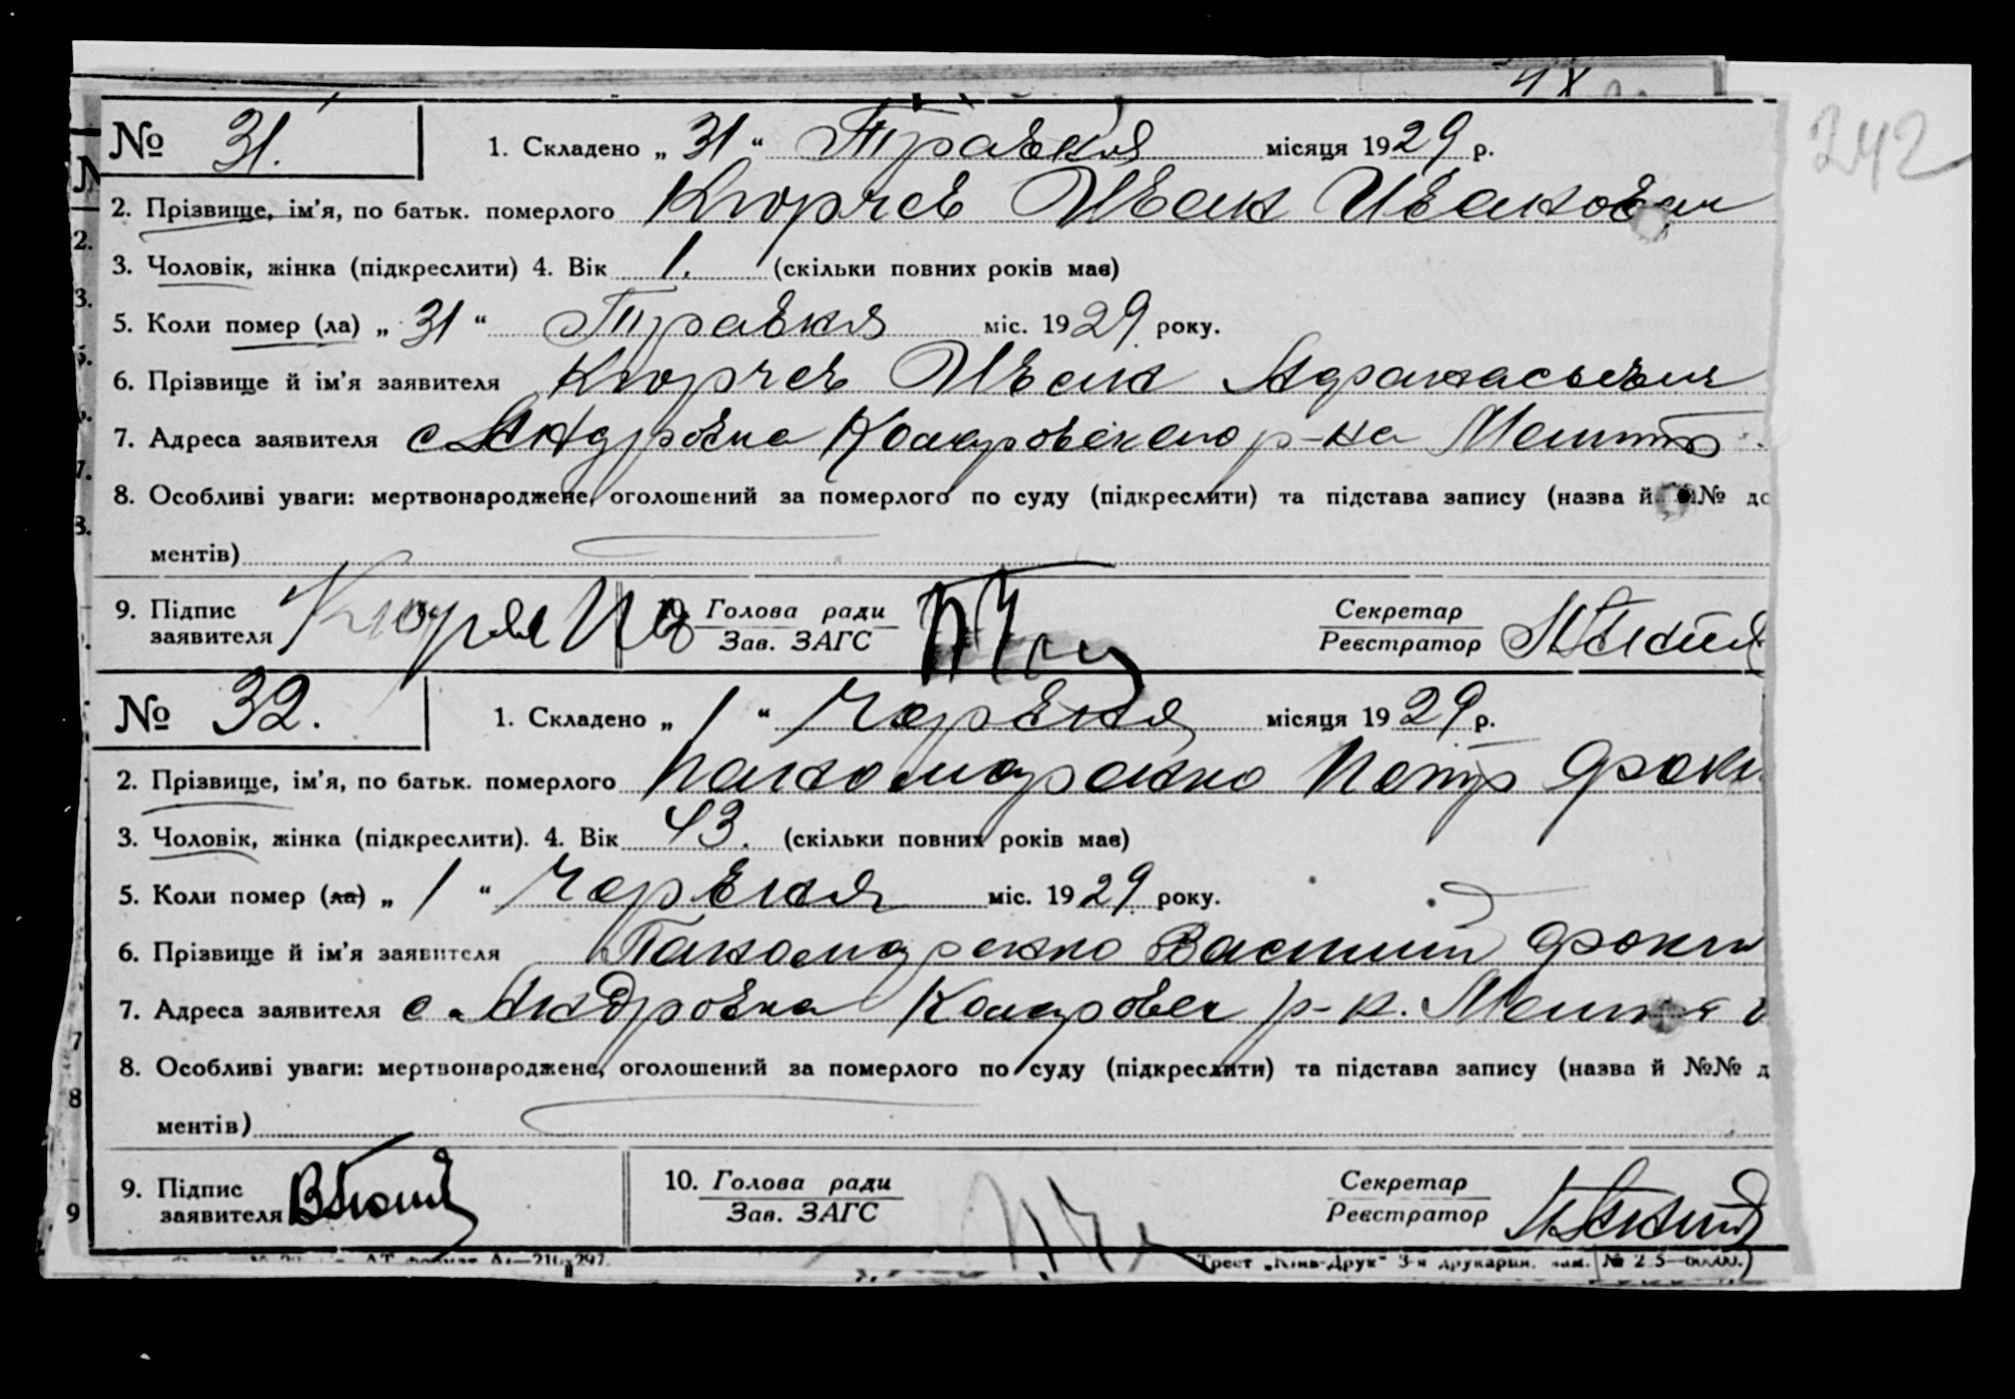 242
№ 31.
1. Складено „ 31 “ Травня місяця 1929 р.
2. Прізвище, ім’я, по батьк. померлого Кюрчев Иван Иванович
3. Чоловік, жінка (підкреслити) 4. Вік 1. (скільки повних років має)
5. Коли помер (ла) „ 31 “ Травня міс. 1929 року.
6. Прізвище й ім’я заявителя Кюрчев Иван Афанасьевич
7. Адреса заявителя с Андровка р-на
8. Особливі уваги: мертвонароджене, оголошений за померлого по суду (підкреслити) та підстава запису (назва й №
ментів)
9. Підпис заявителя Голова ради Зав. ЗАГС Секретар Реєстратор
№ 32.
1. Складено „ 1 “ Червня місяця 1929 р.
2. Прізвище, ім’я, по батьк. померлого Петр
3. Чоловік, жінка (підкреслити). 4. Вік 43. (скільки повних років має)
5. Коли помер (ла) „ 1 “ Червня міс. 1929 року.
6. Прізвище й ім’я заявителя
7. Адреса заявителя с. Андровка р-н.
8. Особливі уваги: мертвонароджене, оголошений за померлого по суду (підкреслити) та підстава запису (назва й №№ д
ментів)
9. Підпис заявителя 10. Голова ради Зав. ЗАГС Секретар Реєстратор
Трест „Київ-Друк“ 3-я друкарня.